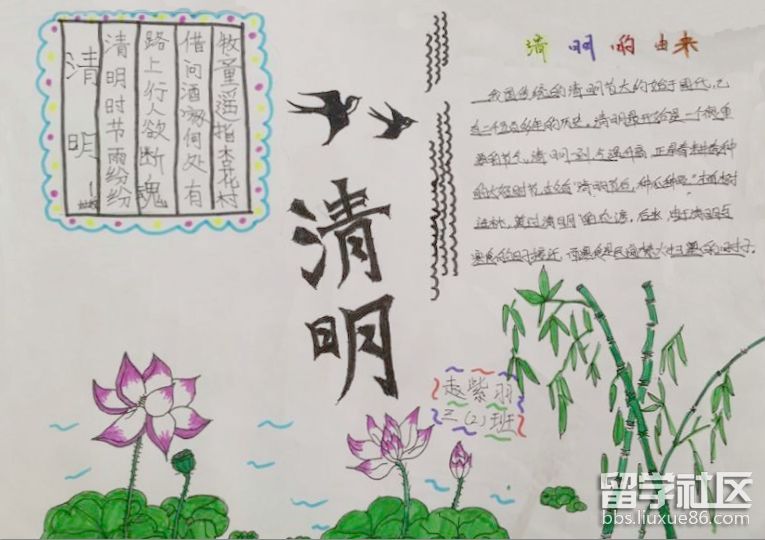 清明
清明时节雨纷纷
路上行人欲断魂
借问酒家何处有
牧童遥指杏花村
清明
清明的由来
我国传统的清明节大约始于周代,已
有二千五百多年的历史。清明最开始是一个很重
要的节气,清明一到,气温升高,正是春耕春种
的大好时节,故有“清明前后,种瓜种豆”“植树
造林,莫过清明”的农谚。后来,由于清明与
寒食的日子接近,而寒食是民间禁火扫墓的日子,
赵紫羽
三(2)班
留学社区
bbs.liuxue86.com